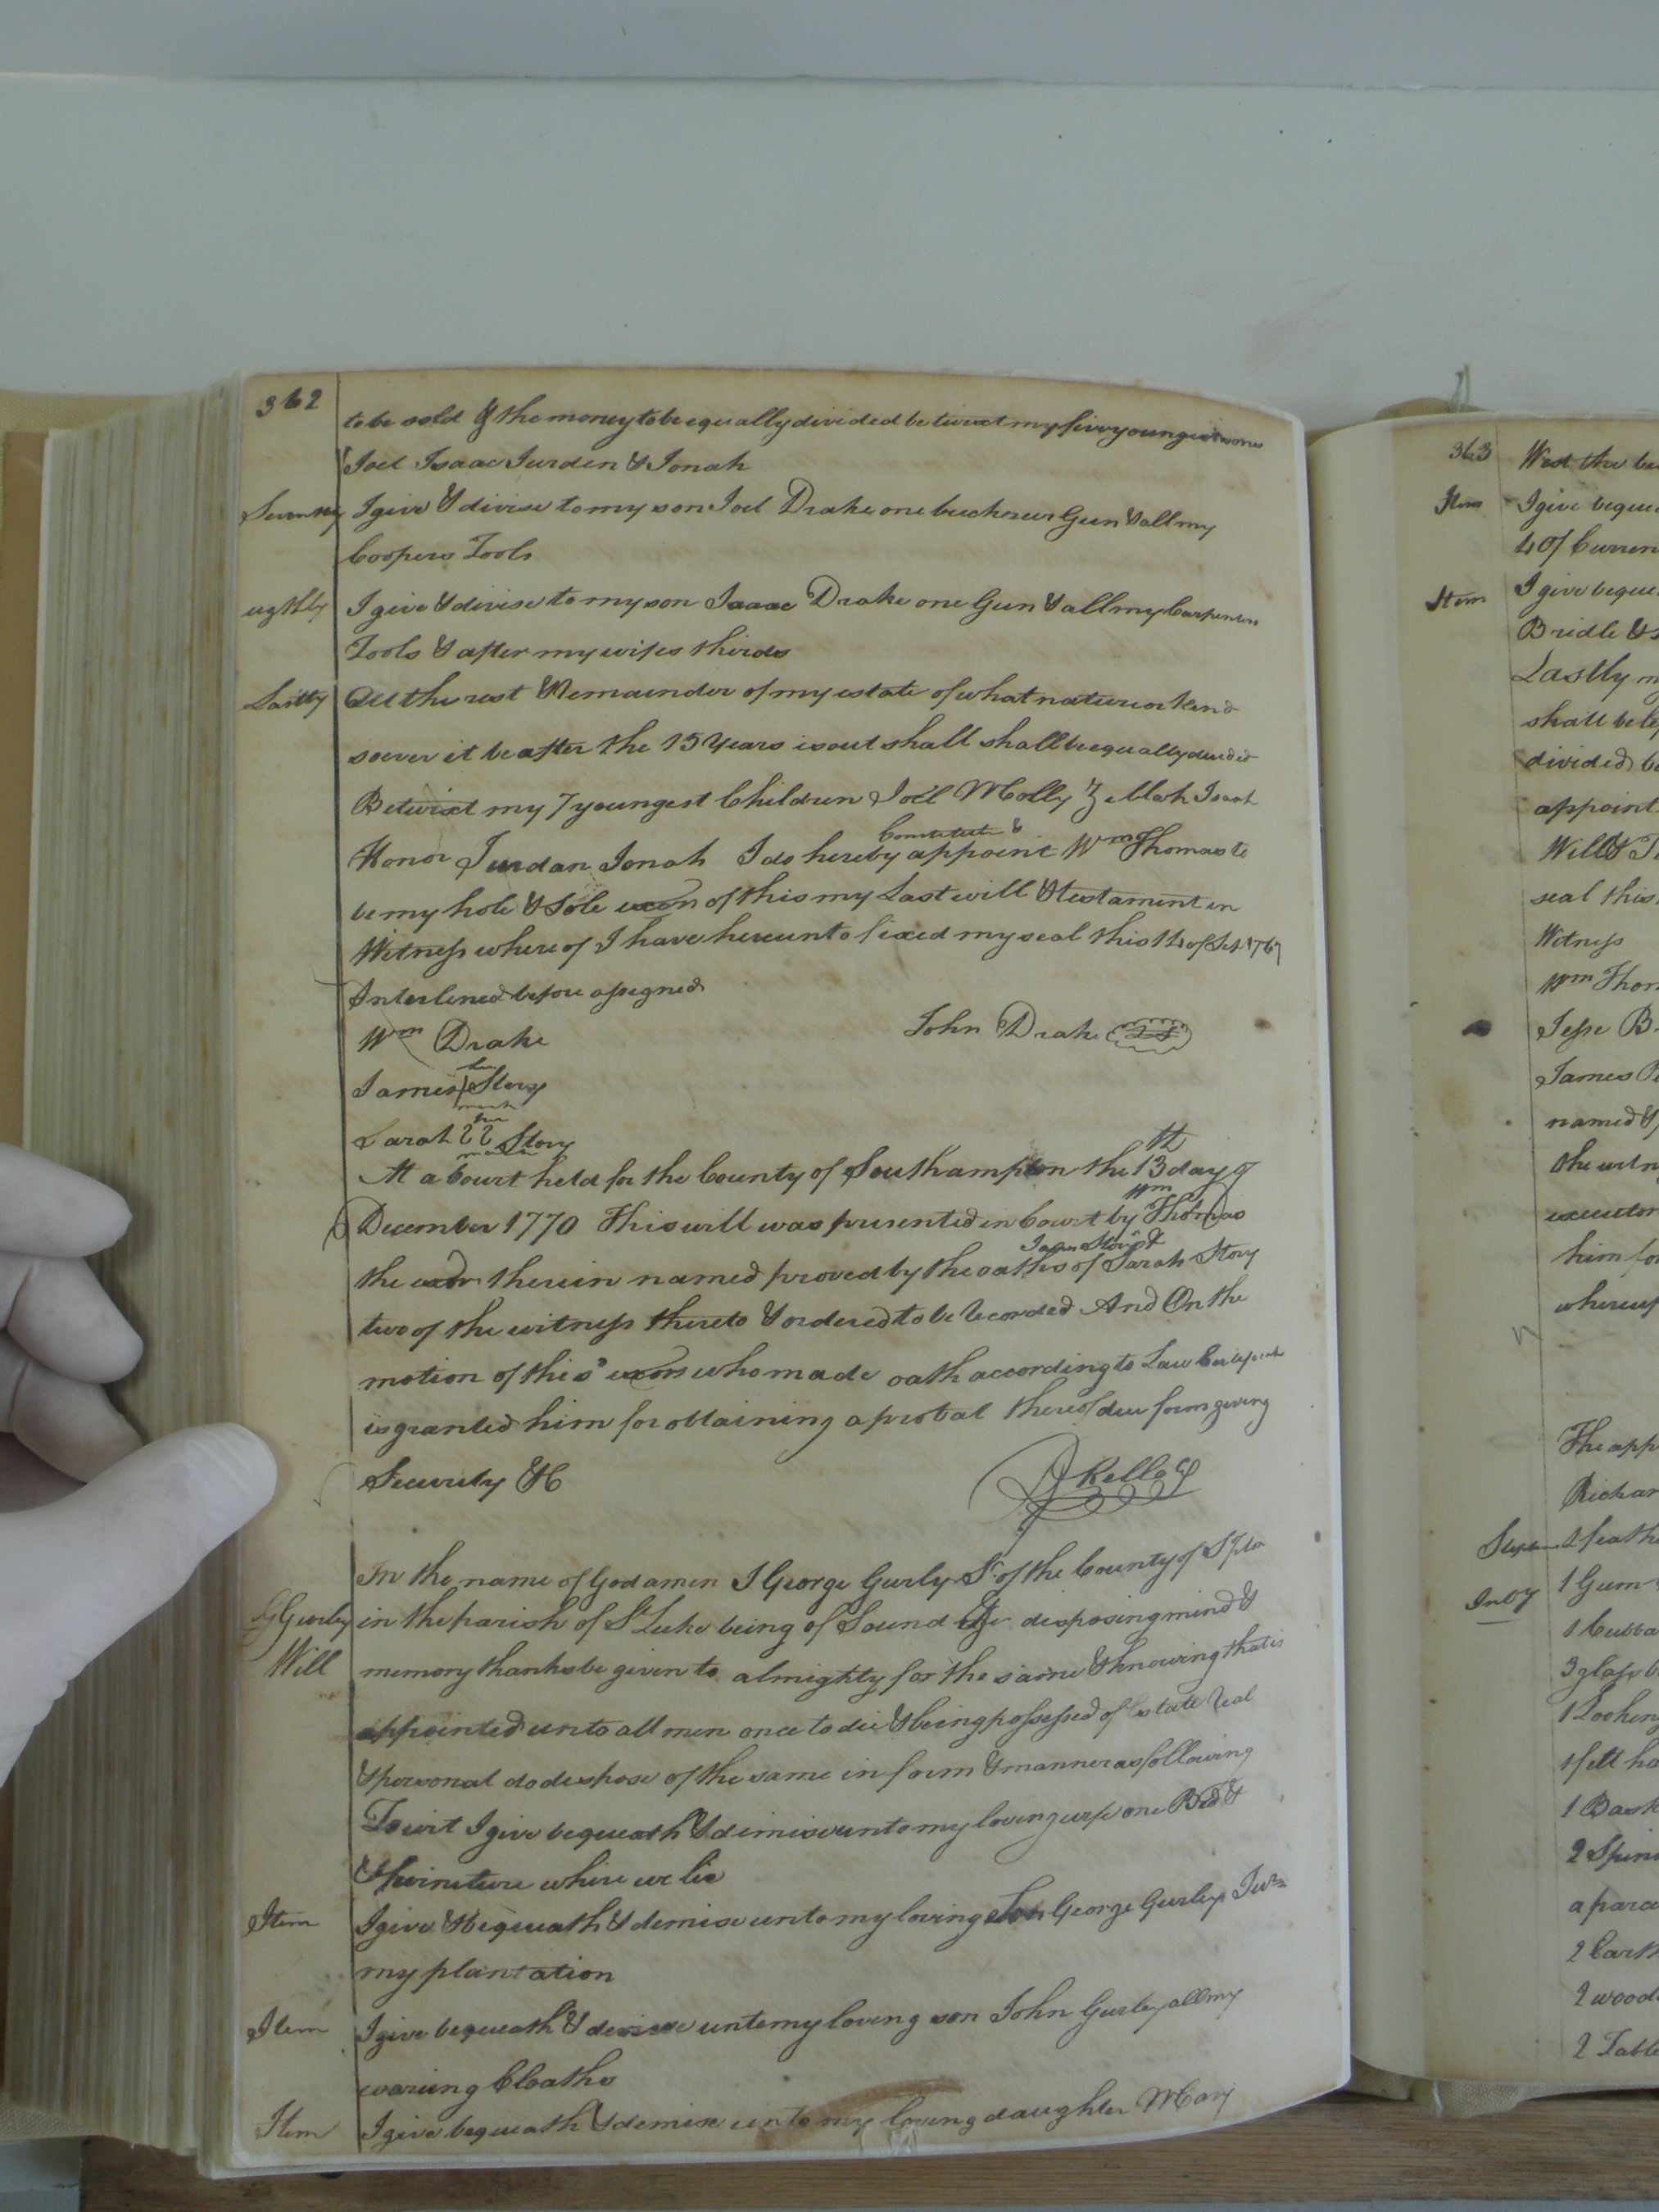 362
to be sold & the money to be equally divided betwixt my five youngest sones
Joel Isaac Jurden & Jonah
I give & divise to my son Joel Drake one buckneer Gun & all my
Coopers Tools
I give & devise to my son Isaac Drake one Gun & all my Carpenters
Tools & after my wifes thirds
Lastly All the rest & Remainder of my estate of what nature or kind
soever it be after the 15 Years is out shall shall be equally divided
Betwixt my 7 youngest Children Joel Molly Isaack
Honor Jurdan Jonah I do hereby Constitute & appoint Wm Thomas to
be my hole & Sole exor of this my Last will & testament in
Witness where of I have hereunto fixed my seal this
Interlined before assigned
Wm Drake John Drake
James his mark Story
Sarah her mark Story
At a Court held for the County of Southampton the 13th day of
December 1770 This will was presented in Court by Wm Thomas
the exor therein named proved by the oaths of James Story & Sarah Story
two of the witness thereto & ordered to be Recorded And On the
motion of the sd exor who made oath according to Law Certificate
is granted him for obtaining a probat thereof due form giving
Security &C
In the name of God amen I George Gurley Sr of the County of
G Gurley in the parish of St Luke being of Sound disposing mind &
Will memory thanks be given to almighty for the same & knowing that is
appointed unto all men once to die & being possessed of Estate Real
& personal do dispose of the same in form & manner as following
To wit I give bequeath & demise unto my loving wife one Bed &
& furniture where we lie
Item I give & bequeath & demise unto my loving Son George Gurley Junr
my plantation
Item I give bequeath & devise unto my loving son John Gurley all my
waring Cloaths
Item I give bequeath & demise unto my loving daughter Mary
363
West the
Item I give
40/
Item I give
Bridle &
Lastly
shall be
divided
appoint
Will &
seal this
Witness
Wm
Jesse
James
named
the
executor
him for
whereup
The
Richar
1
Invy 1 Gum
1
3 glass
1 Looking
1 felt
1 Bask
2 Spin
a
2
2 wood
2 Table